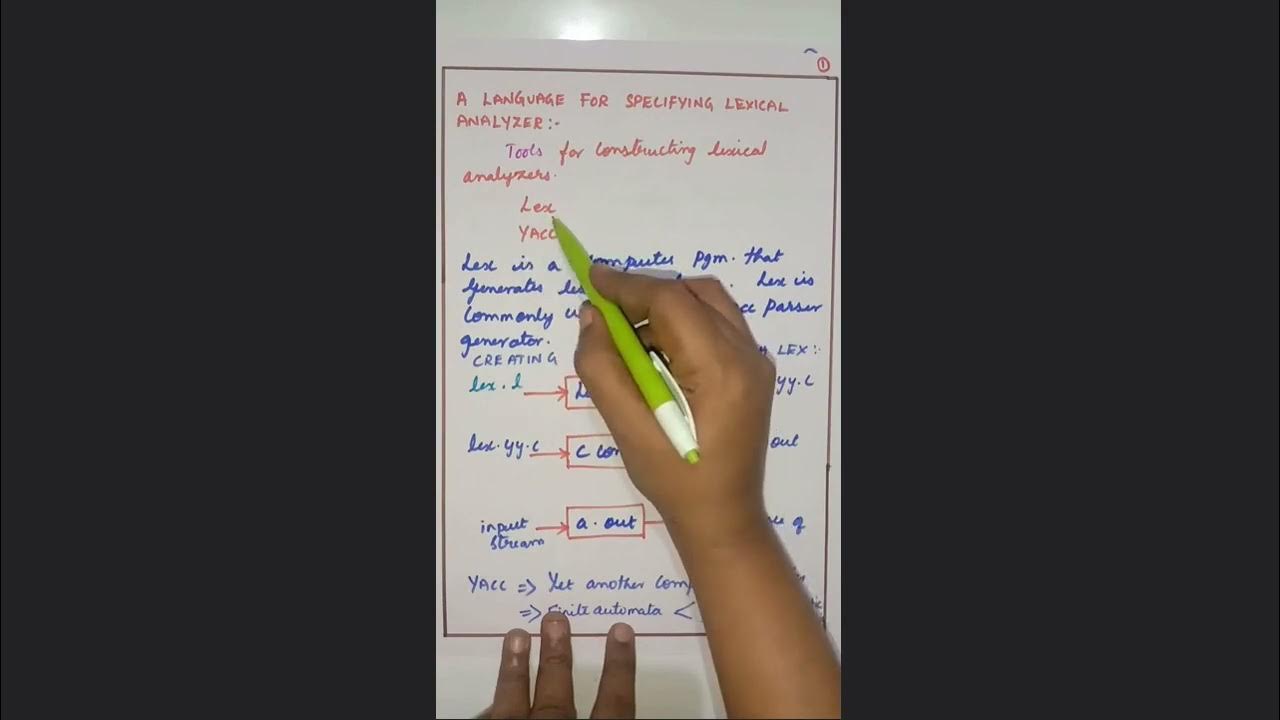 ①
A LANGUAGE FOR SPECIFYING LEXICAL
ANALYZER:-
Tools for constructing lexical
analyzers.
Lex
YACC
Lex is a Computer Pgm. that
Generates Lex is
Commonly Parser
generator.
CREATING LEX:-
lex.l yy.c
lex.yy.c C out
a.out of
input
stream
YACC => Yet another
=> Finite automata <